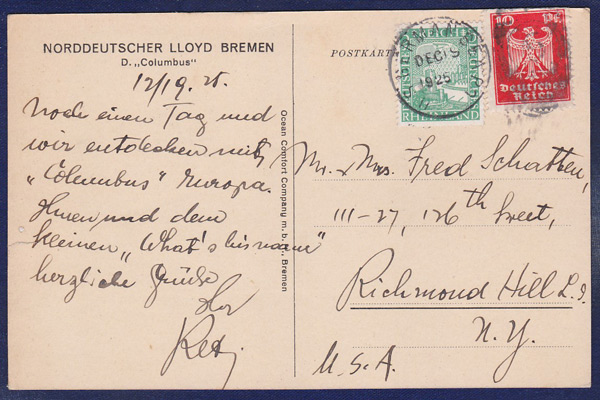 NORDDEUTSCHER LLOYD BREMEN
D. „Columbus"
12/19. 25.
Noch einen Tag und
wir entdecken mit
„Columbus" Europa.
Ihnen und dem
kleinen „What's his name"
herzliche Grüße
Ihr
Ocean Comfort Company m. b. H., Bremen
POSTKARTE
DEC 19
1925
RHEINLAND
10 Pf.
Deutsches
Reich
Mr. & Mrs. Fred Schatten,
111-27, 126th Street,
Richmond Hill L.I.
N.Y.
U.S.A.